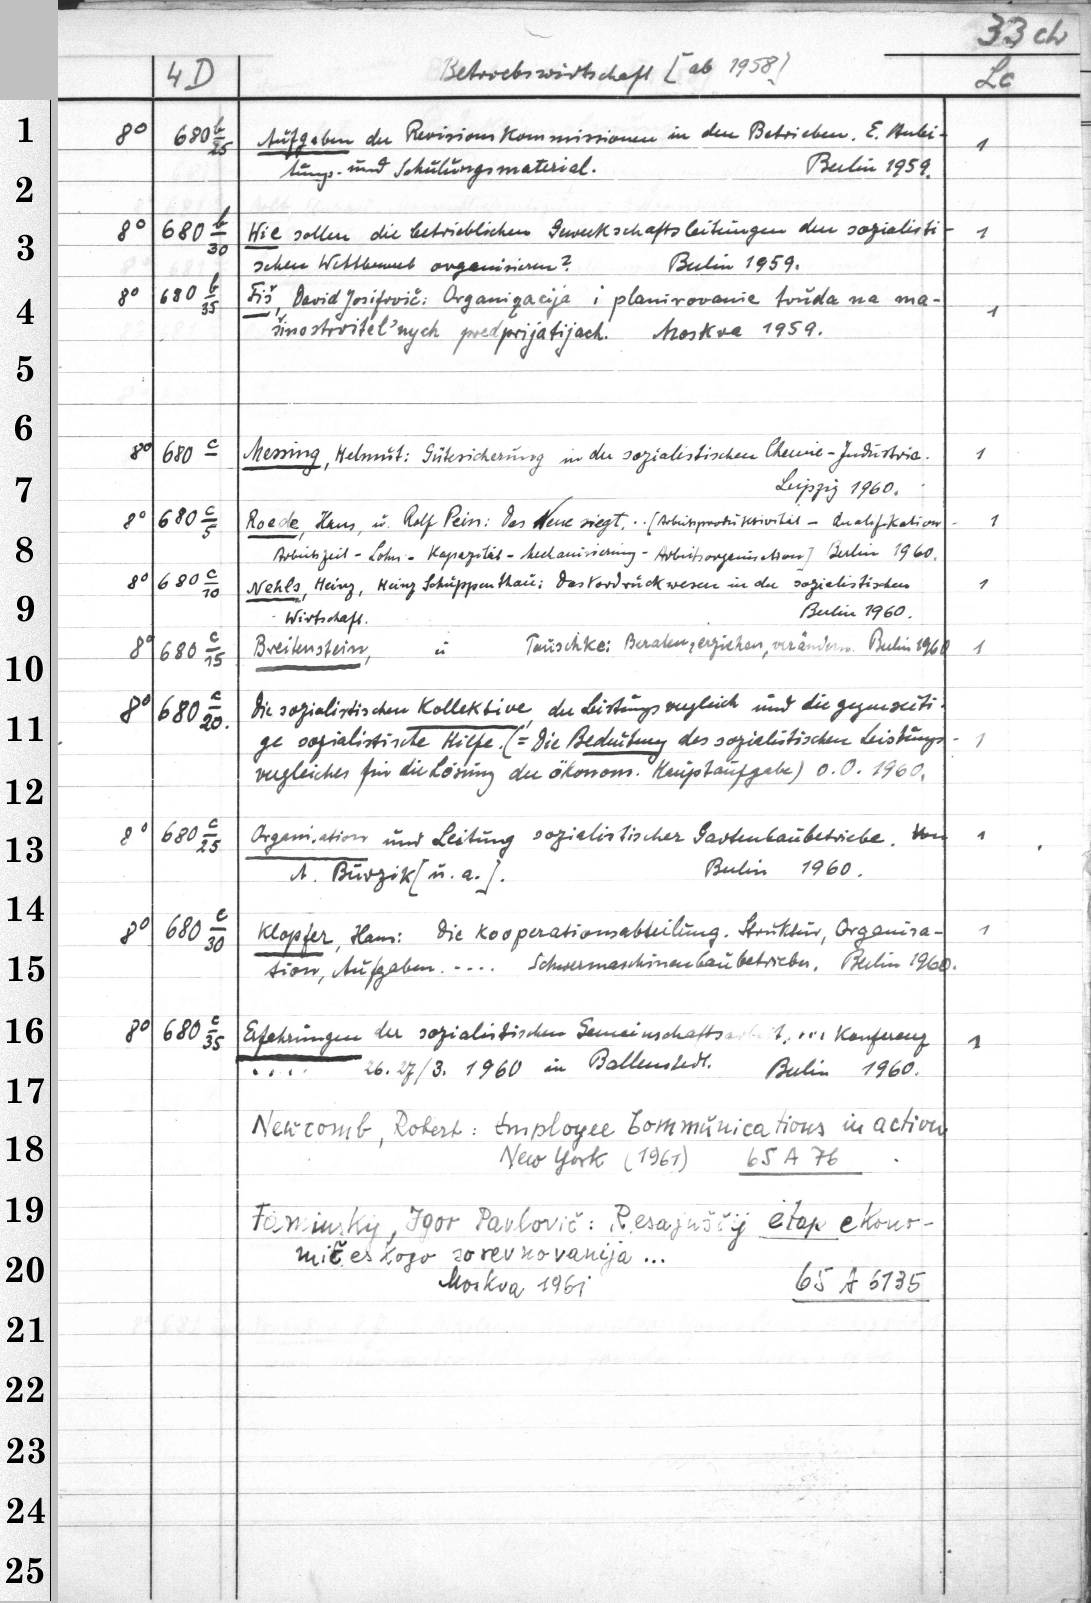 33 ch
4 D Betriebswirtschaft [ab 1958] Lc
1 8° 680 b/25 Aufgaben der Revisionskommissionen in den Betrieben. E. Anlei- 1
tungs- und Schulungsmaterial. Berlin 1959.
2
3 8° 680 b/30 Wie sollen die betrieblichen Gewerkschaftsleitungen den sozialisti- 1
schen Wettbewerb organisieren? Berlin 1959.
4 8° 680 b/35 Fiš, David Josifovič: Organizacija i planirovanie truda na ma- 1
šinostroitel'nych predprijatijach. Moskva 1959.
5
6
8° 680 c Messing, Helmut: Gütesicherung in der sozialistischen Chemie-Industrie. 1
7 Leipzig 1960.
8° 680 c/5 Roede, Hans, u. Rolf Pein: Das Neue siegt... [Arbeitsproduktivität - Qualifikation - 1
8 Arbeitszeit - Lohn - Kapazität - Mechanisierung - Arbeitsorganisation] Berlin 1960.
8° 680 c/10 Nehls, Heinz, Heinz Schuppenhau: Das Vordruckwesen in der sozialistischen 1
9 Wirtschaft. Berlin 1960.
10 8° 680 c/15 Breitenstein, u Tauschke: Beraten, erziehen, verändern. Berlin 1960 1
8° 680 c/20. Die sozialistischen Kollektive, der Leistungsvergleich und die gegenseiti-
11 ge sozialistische Hilfe. (= Die Bedeutung des sozialistischen Leistungs- 1
12 vergleiches für die Lösung der ökonom. Hauptaufgabe) o.O. 1960.
13 8° 680 c/25 Organisation und Leitung sozialistischer Gartenbaubetriebe. Von 1
A. Burzik [u.a.]. Berlin 1960.
14
8° 680 c/30 Klopfer, Hans: Die Kooperationsabteilung. Struktur, Organisa- 1
15 tion, Aufgaben.... Schwermaschinenbaubetrieben. Berlin 1960.
16 8° 680 c/35 Erfahrungen der sozialistischen Gemeinschaftsarbeit, ... Konferenz 1
.... 26. 27/3. 1960 in Ballenstedt. Berlin 1960.
17
Newcomb, Robert: Employee Communications in action
18 New York (1961) 65 A 76
19 Faminskij, Igor Pavlovič: Resajuščij etap ekono-
20 mičeskogo sorevnovanija ...
Moskva 1961 65 A 6135
21
22
23
24
25